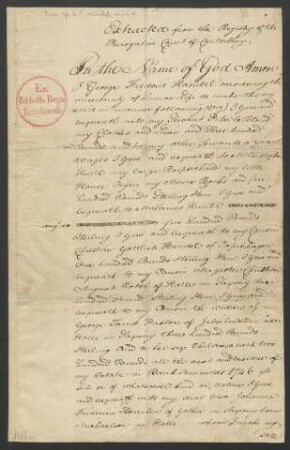 Extracted from the Registry of the
Prerogative Court of Canterbury.
In the Name of God Amen
I George Frideric Handel considering the
uncertainty of human life do make this my
will in manner following viz. I Give and
bequeath unto my Servant Peter le Blond
my Cloaths and Linnen and three hundred
Pounds and to my other Servants a year
wages I Give and bequeath to Mr Christopher
Smith my large Harpsichord my little
House Organ my Musick Books and five
hundred Pounds Sterling Item I Give and
bequeath to Mr James Hunter
five hundred Pounds
Sterling I Give and bequeath to my Cousin
Christian Gottlieb Handel of Copenhagen
One hundred Pounds Sterling Item I Give and
bequeath to my Cousin Magister Christian
August Rotth of Halle in Saxony One
hundred Pounds Sterling Item I Give and
bequeath to my Cousin the widow of
George Taust Pastor of Giebichenstein near
Halle in Saxony three hundred Pounds
Sterling and to her six Children each two
hundred Pounds all the next and residue of
my Estate in Bank Annuities 1746
or of whatsoever kind or nature I Give
and bequeath unto my dear Niece Johanna
of Gotha in Saxony born
Michaelsen in Halle whom I make my
Ex
Biblioth. Regia
Berolinensi.